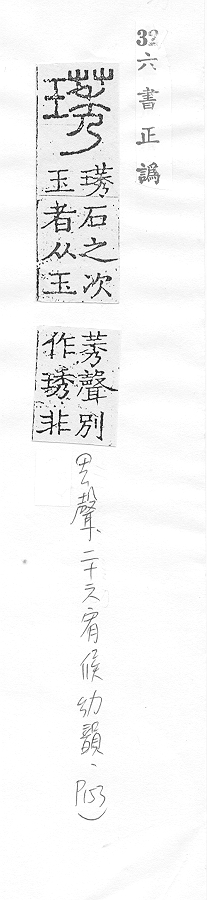 32 六書正譌
璓
璓石之次
玉者从玉
莠聲別
作琇非
去聲、二十六宥候幼韻、P153)